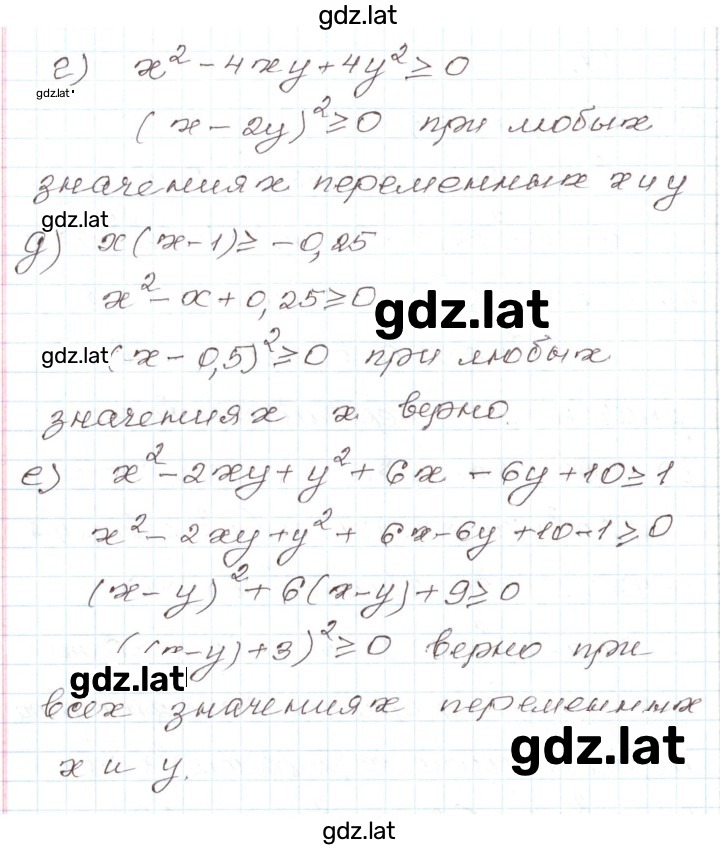 gdz.lat
г) x² - 4xy + 4y² ≥ 0
gdz.lat
(x - 2y)² ≥ 0 при любых
значениях переменных x и y
gdz.lat
д) x(x-1) ≥ -0,25
x² - x + 0,25 ≥ 0
gdz.lat
gdz.lat (x - 0,5)² ≥ 0 при любых
значениях x верно.
е) x² - 2xy + y² + 6x - 6y + 10 ≥ 1
x² - 2xy + y² + 6x - 6y + 10 - 1 ≥ 0
(x - y)² + 6(x - y) + 9 ≥ 0
((x - y) + 3)² ≥ 0 верно при
gdz.lat
всех значениях переменных
gdz.lat
x и y.
gdz.lat